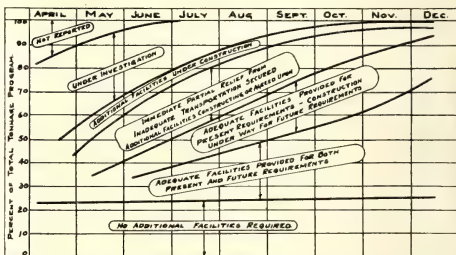 APRIL MAY JUNE JULY AUG SEPT. OCT. NOV. DEC.
PERCENT OF TOTAL TONNAGE PROGRAM
100
90
80
70
60
50
40
30
20
10
0
NOT REPORTED
UNDER INVESTIGATION
ADDITIONAL FACILITIES UNDER CONSTRUCTION
IMMEDIATE PARTIAL RELIEF FROM
INADEQUATE TRANSPORTATION SECURED
ADDITIONAL FACILITIES CONSTRUCTING OR AGREED UPON
ADEQUATE FACILITIES PROVIDED FOR
PRESENT REQUIREMENTS - CONSTRUCTION
UNDER WAY FOR FUTURE REQUIREMENTS
ADEQUATE FACILITIES PROVIDED FOR BOTH
PRESENT AND FUTURE REQUIREMENTS
NO ADDITIONAL FACILITIES REQUIRED